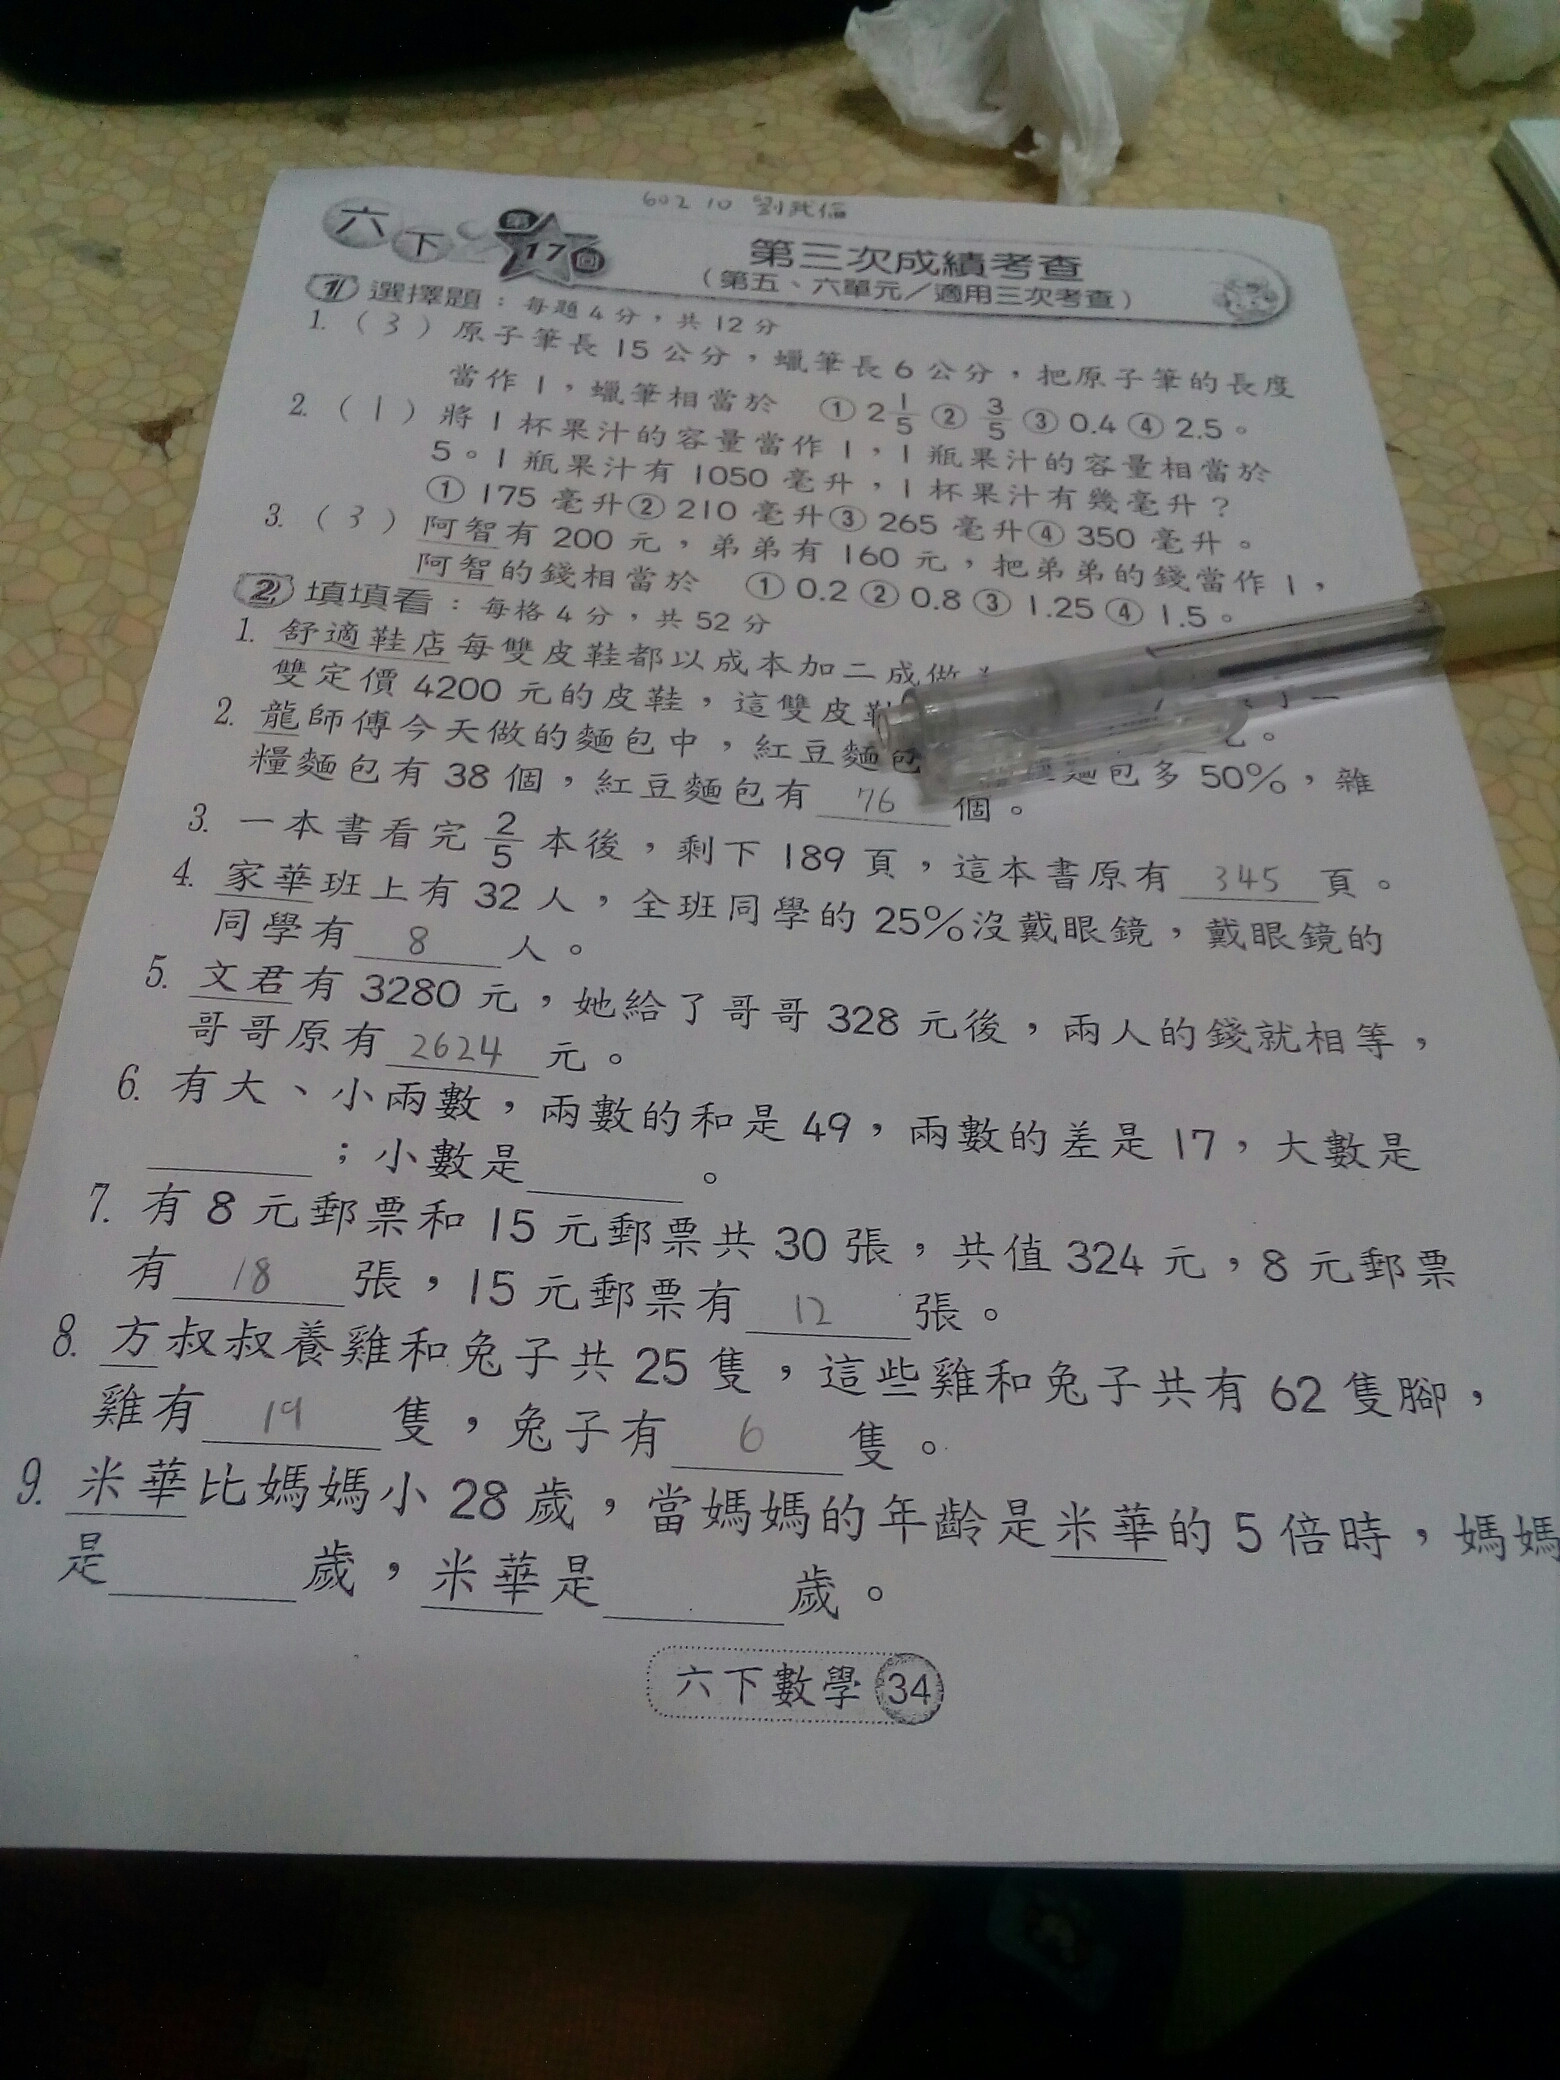 602 10 劉
六下 第17回 第三次成績考查
（第五、六單元／適用三次考查）
1 選擇題：每題4分，共12分
1.（3）原子筆長15公分，蠟筆長6公分，把原子筆的長度
當作1，蠟筆相當於 ①2 1/5 ②3/5 ③0.4 ④2.5。
2.（1）將1杯果汁的容量當作1，1瓶果汁的容量相當於
5。1瓶果汁有1050毫升，1杯果汁有幾毫升？
①175毫升②210毫升③265毫升④350毫升。
3.（3）阿智有200元，弟弟有160元，把弟弟的錢當作1，
阿智的錢相當於 ①0.2②0.8③1.25④1.5。
2 填填看：每格4分，共52分
1. 舒適鞋店每雙皮鞋都以成本加二成做
雙定價4200元的皮鞋，這雙皮鞋
2. 龍師傅今天做的麵包中，紅豆麵包 麵包多50%，雜
糧麵包有38個，紅豆麵包有 76 個。
3. 一本書看完2/5本後，剩下189頁，這本書原有 345 頁。
4. 家華班上有32人，全班同學的25%沒戴眼鏡，戴眼鏡的
同學有 8 人。
5. 文君有3280元，她給了哥哥328元後，兩人的錢就相等，
哥哥原有 2624 元。
6. 有大、小兩數，兩數的和是49，兩數的差是17，大數是
；小數是 。
7. 有8元郵票和15元郵票共30張，共值324元，8元郵票
有 18 張，15元郵票有 12 張。
8. 方叔叔養雞和兔子共25隻，這些雞和兔子共有62隻腳，
雞有 19 隻，兔子有 6 隻。
9. 米華比媽媽小28歲，當媽媽的年齡是米華的5倍時，媽媽
是 歲，米華是 歲。
六下數學 34